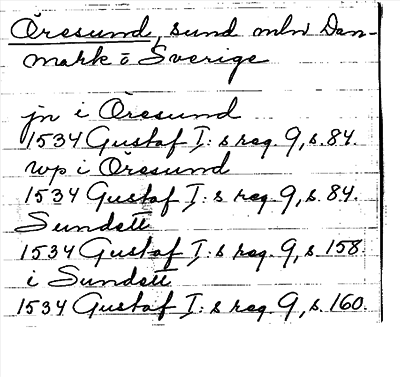 Öresund, sund mln Dan-
mark o Sverige
jn i Öresund
1534 Gustaf I:s reg. 9, s. 84.
wp i Öresund
1534 Gustaf I:s reg. 9, s. 84.
Sundett
1534 Gustaf I:s reg. 9, s. 158
i Sundett
1534 Gustaf I:s reg. 9, s. 160.